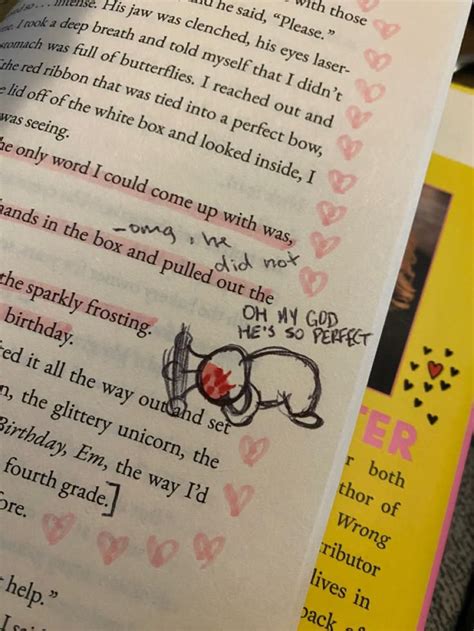 with those
he said, "Please."
intense. His jaw was clenched, his eyes laser-
I took a deep breath and told myself that I didn't
stomach was full of butterflies. I reached out and
the red ribbon that was tied into a perfect bow,
lid off of the white box and looked inside, I
was seeing.
he only word I could come up with was,
-omg, he
did not
hands in the box and pulled out the
OH MY GOD
HE'S SO PERFECT
the sparkly frosting.
birthday.
ted it all the way out and set
n, the glittery unicorn, the
Birthday, Em, the way I'd
fourth grade.]
ore.
help."
I said
ER
r both
thor of
Wrong
tributor
lives in
pack of